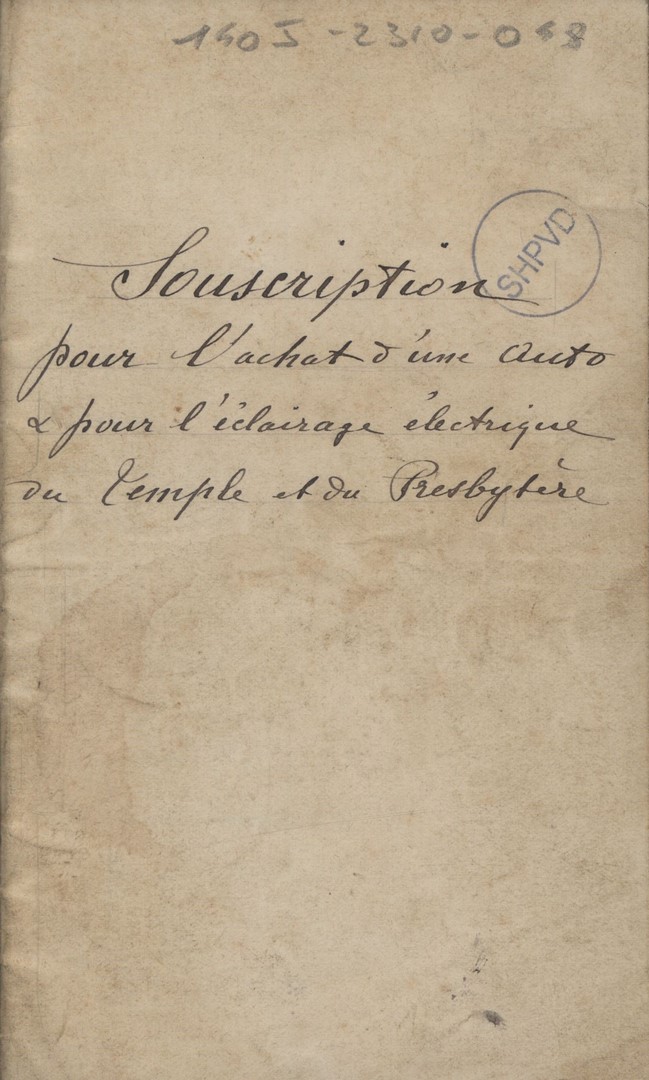 140J-2310-048
SHPVD
Souscription
pour l'achat d'une auto
& pour l'éclairage électrique
du Temple et du Presbytère